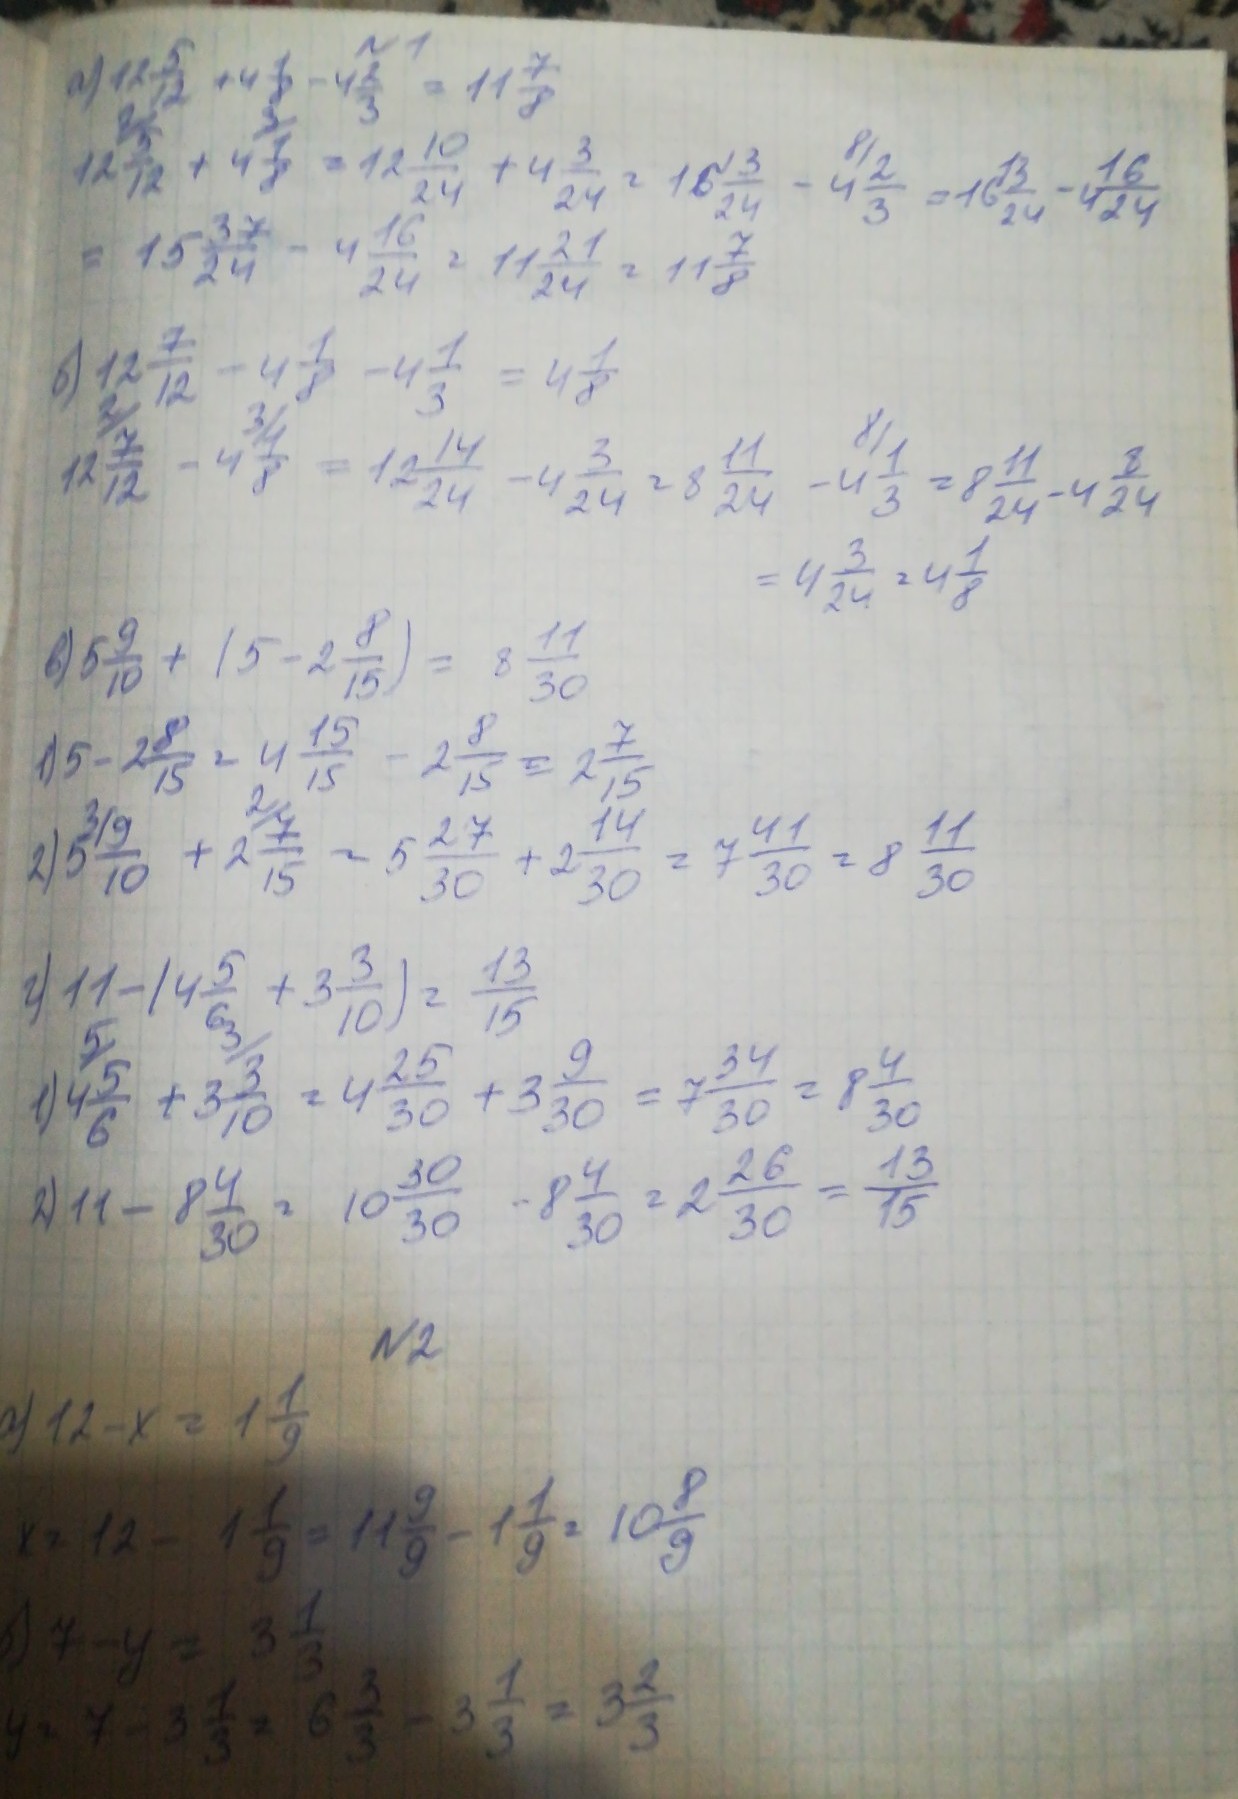 N1
а) 12 5/12 + 4 1/8 - 4 2/3 = 11 7/8
12 2/ 5/12 + 4 3/ 1/8 = 12 10/24 + 4 3/24 = 16 13/24 - 4 8/ 2/3 = 16 13/24 - 4 16/24
= 15 37/24 - 4 16/24 = 11 21/24 = 11 7/8
б) 12 7/12 - 4 1/8 - 4 1/3 = 4 1/8
12 2/ 7/12 - 4 3/ 1/8 = 12 14/24 - 4 3/24 = 8 11/24 - 4 8/ 1/3 = 8 11/24 - 4 8/24
= 4 3/24 = 4 1/8
в) 5 9/10 + (5 - 2 8/15) = 8 11/30
1) 5 - 2 8/15 = 4 15/15 - 2 8/15 = 2 7/15
2) 5 3/ 9/10 + 2 2/ 7/15 = 5 27/30 + 2 14/30 = 7 41/30 = 8 11/30
г) 11 - (4 5/6 + 3 3/10) = 13/15
1) 4 5/ 5/6 + 3 3/ 3/10 = 4 25/30 + 3 9/30 = 7 34/30 = 8 4/30
2) 11 - 8 4/30 = 10 30/30 - 8 4/30 = 2 26/30 = 13/15
N2
а) 12 - x = 1 1/9
x = 12 - 1 1/9 = 11 9/9 - 1 1/9 = 10 8/9
б) 7 - y = 3 1/3
y = 7 - 3 1/3 = 6 3/3 - 3 1/3 = 3 2/3